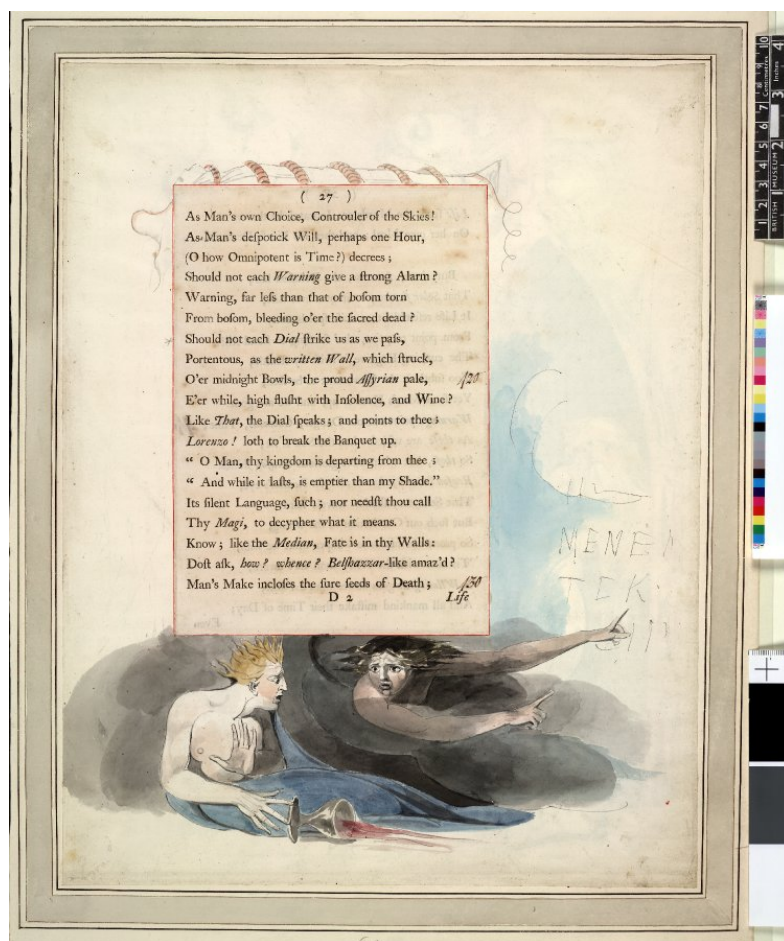 ( 27 )
As Man's own Choice, Controuler of the Skies!
As Man's deſpotick Will, perhaps one Hour,
(O how Omnipotent is Time?) decrees;
Should not each Warning give a ſtrong Alarm?
Warning, far leſs than that of boſom torn
From boſom, bleeding o'er the ſacred dead?
Should not each Dial ſtrike us as we paſs,
Portentous, as the written Wall, which ſtruck,
O'er midnight Bowls, the proud Aſſyrian pale, 420
E'er while, high fluſht with Inſolence, and Wine?
Like That, the Dial ſpeaks; and points to thee;
Lorenzo! loth to break the Banquet up.
“ O Man, thy kingdom is departing from thee;
“ And while it laſts, is emptier than my Shade.”
Its ſilent Language, ſuch; nor needſt thou call
Thy Magi, to decypher what it means.
Know; like the Median, Fate is in thy Walls:
Doſt aſk, how? whence? Belſhazzar-like amaz'd?
Man's Make incloſes the ſure ſeeds of Death; 430
D 2 Life
MENE
TEK
Centimetres
Inches
BRITISH MUSEUM
1 2 3 4 5 6 7 8 9 10
1 2 3 4